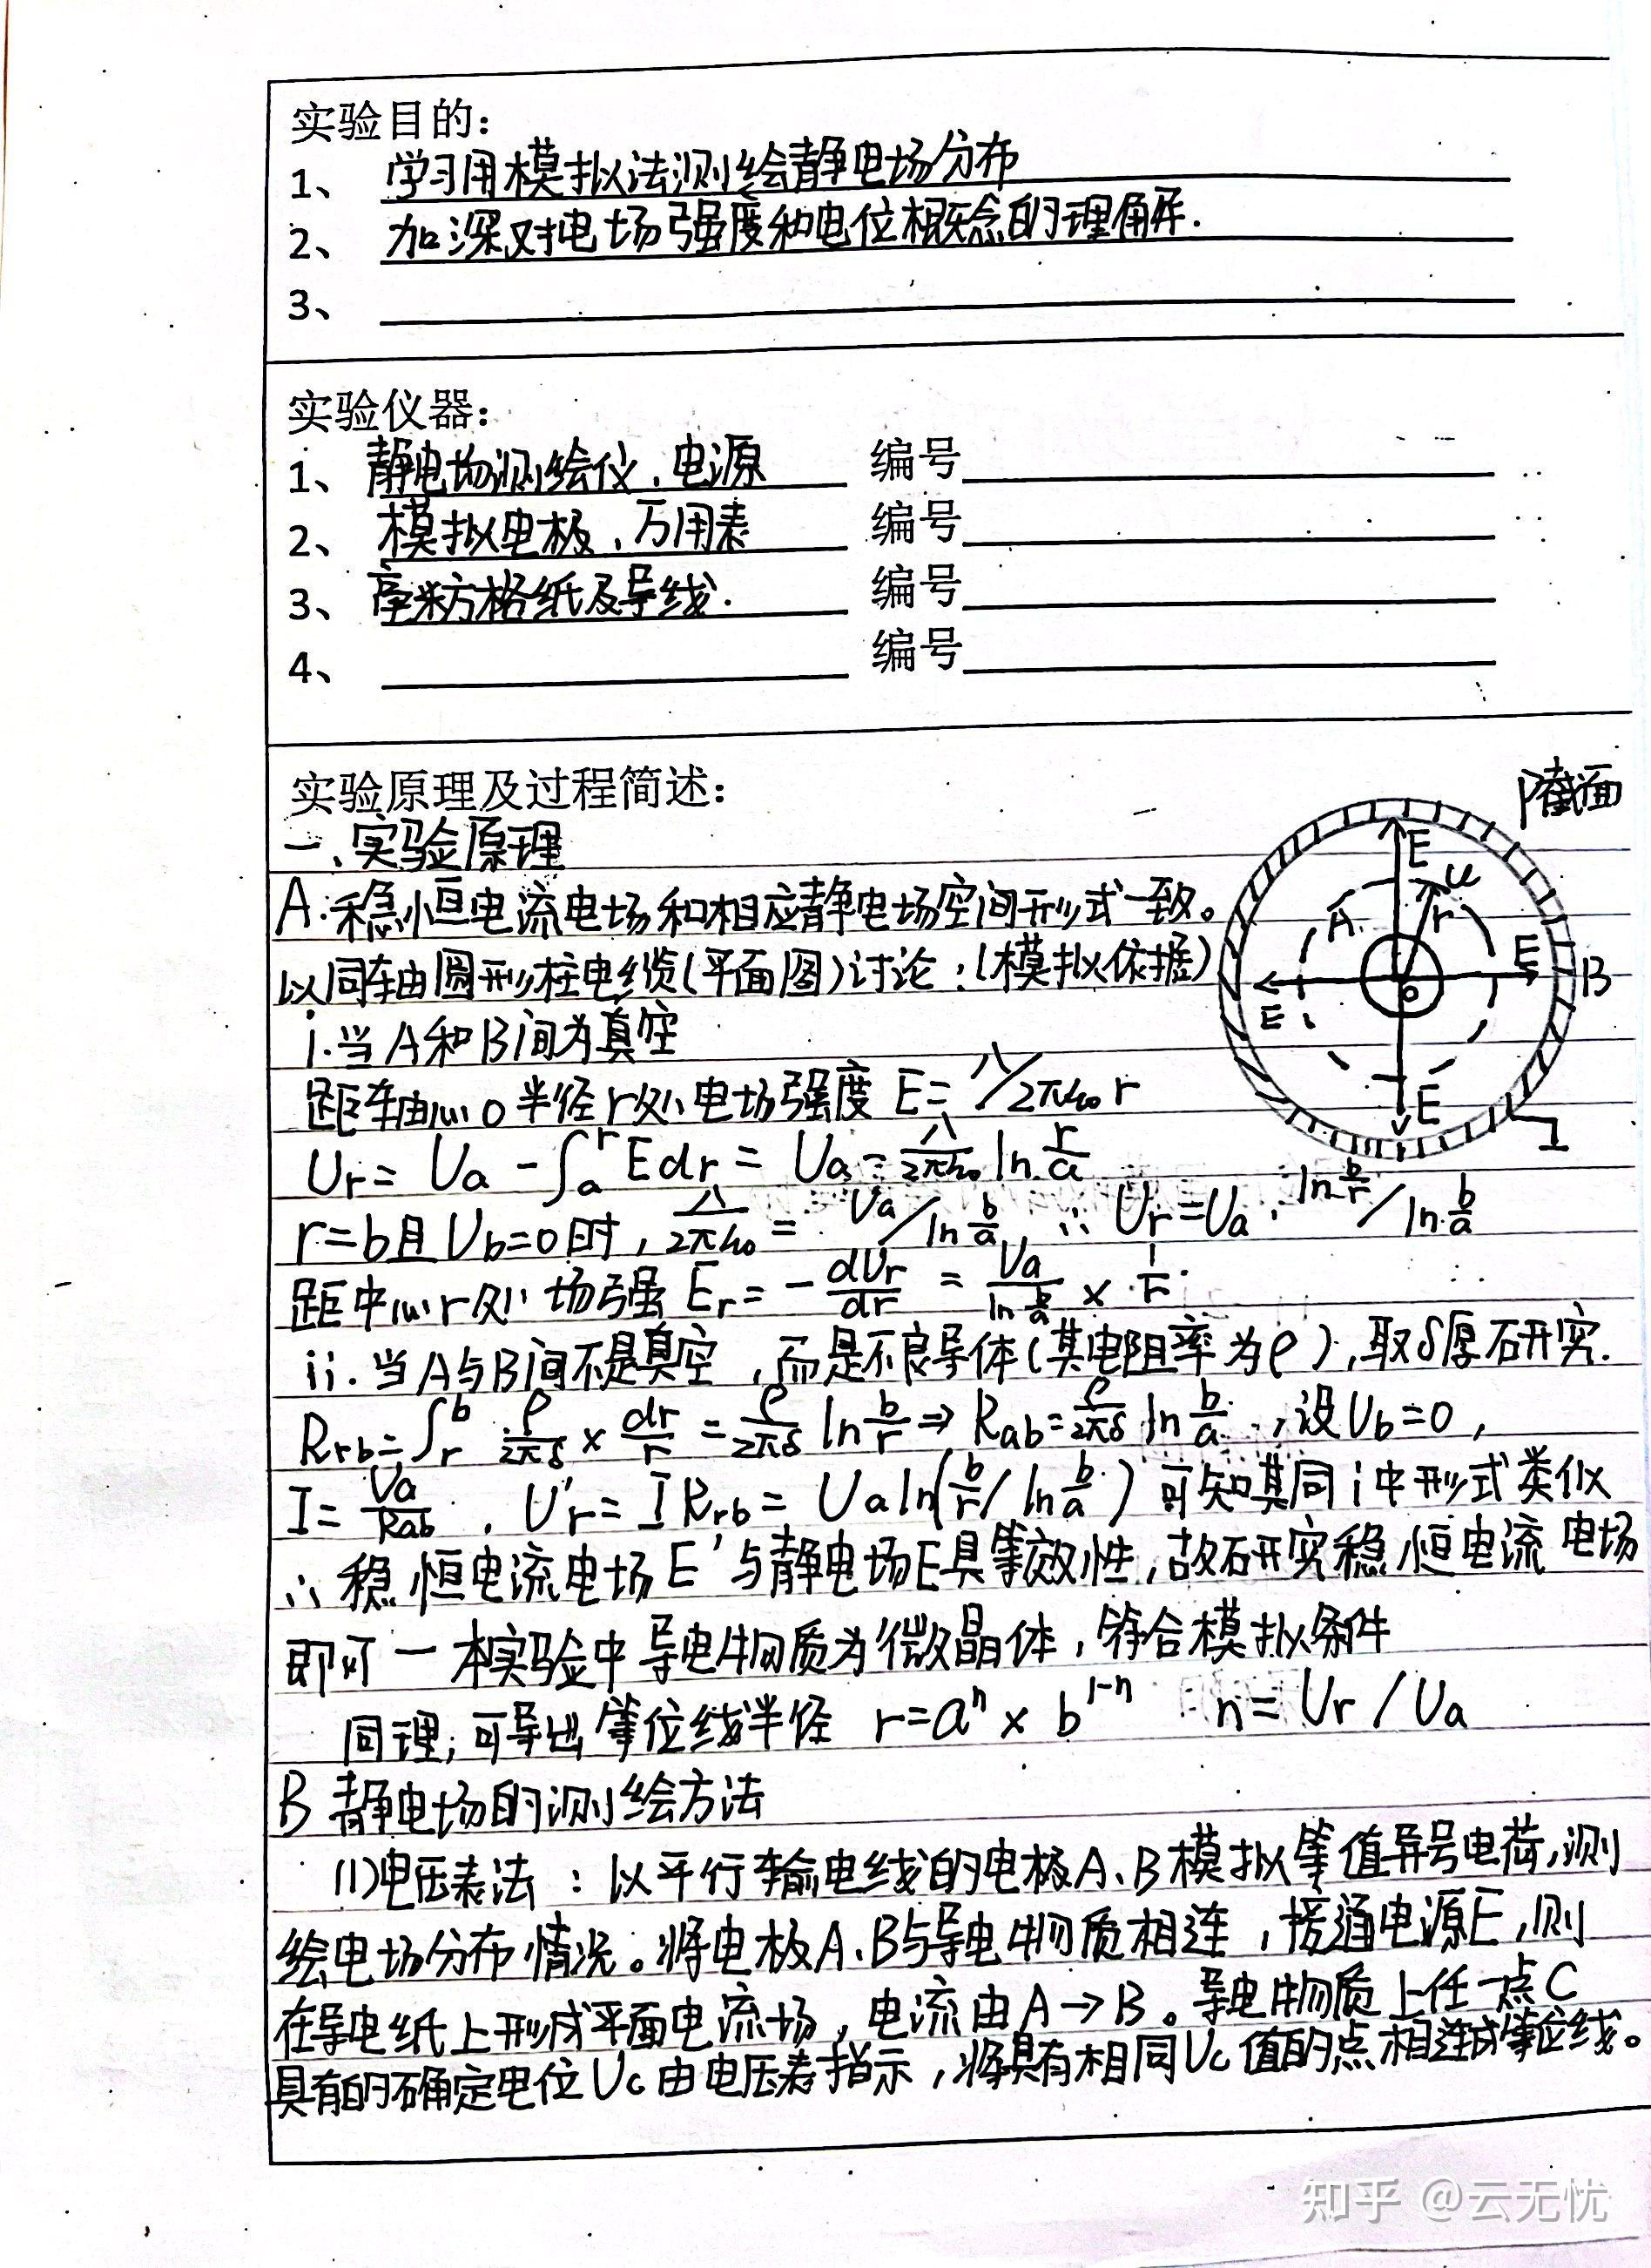 实验目的：
1、 学习用模拟法测绘静电场分布
2、 加深对电场强度和电位概念的理解.
3、
实验仪器：
1、 静电场测绘仪、电源 编号
2、 模拟电极、万用表 编号
3、 毫米方格纸及导线. 编号
4、 编号
实验原理及过程简述：
截面
一、实验原理
A.稳恒电流电场和相应静电场空间形式一致。
以同轴圆形柱电缆(平面图)讨论：(模拟依据)
E u r A E B E o E I
i.当A和B间为真空
距轴心O半径r处电场强度 E=λ/2πε₀r
Ur= Ua - ∫ₐʳ Edr = Ua - λ/2πε₀ ln r/a
r=b且Ub=0时, λ/2πε₀ = Ua/ln b/a, ∴ Ur=Ua·ln b/r / ln b/a
距中心r处场强 Er= - dUr/dr = Ua/ln b/a × 1/r
ii.当A与B间不是真空,而是不良导体(其电阻率为ρ),取δ厚研究.
Rrb=∫ᵣᵇ ρ/2πδ × dr/r = ρ/2πδ ln b/r ⇒ Rab= ρ/2πδ ln b/a ,设Ub=0,
I= Ua/Rab , U'r= IRrb= Ualn(b/r/ln b/a) 可知其同i中形式类似
∴ 稳恒电流电场E'与静电场E具等效性,故研究稳恒电流电场
即可 — 本实验中导电物质为微晶体,符合模拟条件
同理,可导出等位线半径 r=aⁿ × b¹⁻ⁿ n= Ur / Ua
B 静电场的测绘方法
(1)电压表法：以平行输电线的电极A、B模拟等值异号电荷,测
绘电场分布情况。将电极A、B与导电物质相连,接通电源E,则
在导电纸上形成平面电流场,电流由A→B。导电物质上任一点C
具有的确定电位Uc由电压表指示,将具有相同Uc值的点相连成等位线。
知乎 @云无忧